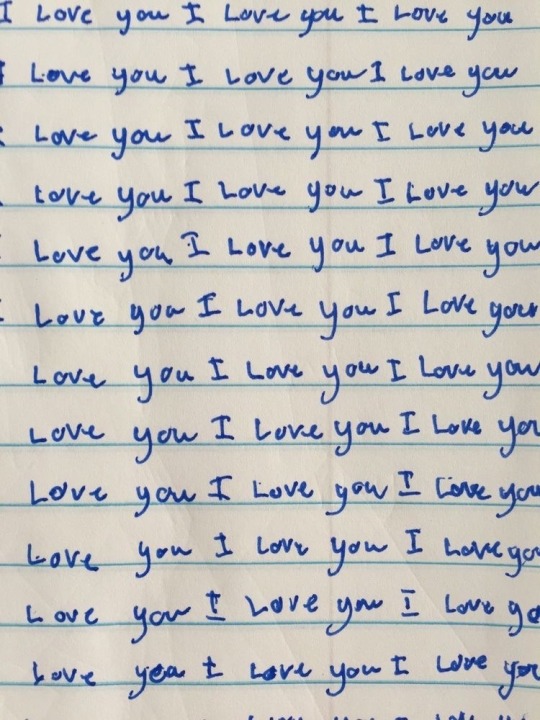 I Love you I Love you I Love you
I Love you I Love you I Love you
Love you I Love you I Love you
Love you I Love you I Love you
Love you I Love you I Love you
Love you I Love you I Love you
Love you I Love you I Love you
Love you I Love you I Love you
Love you I Love you I Love you
Love you I Love you I Love yo
Love you I Love you I Love yo
Love you I Love you I Love you